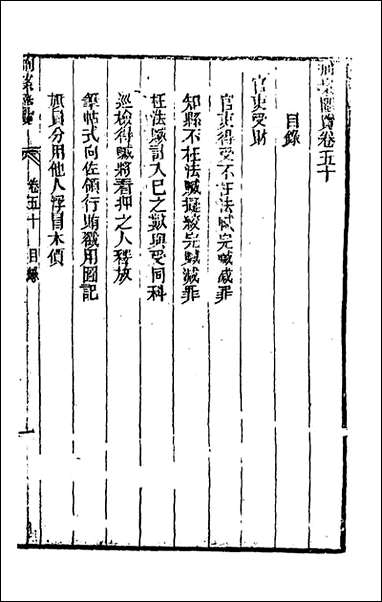 刑案匯覽卷五十
目錄
官吏受財
官吏得受不枉法贓完贓減罪
知縣不枉法贓擬絞完贓減罪
枉法贓訂入巳之數與受同科
巡檢得贓將看押之人釋放
筆帖式向佐領行賄戳用圖記
旗員分用他人浮冒木價
刑案匯覽
卷五十 目錄